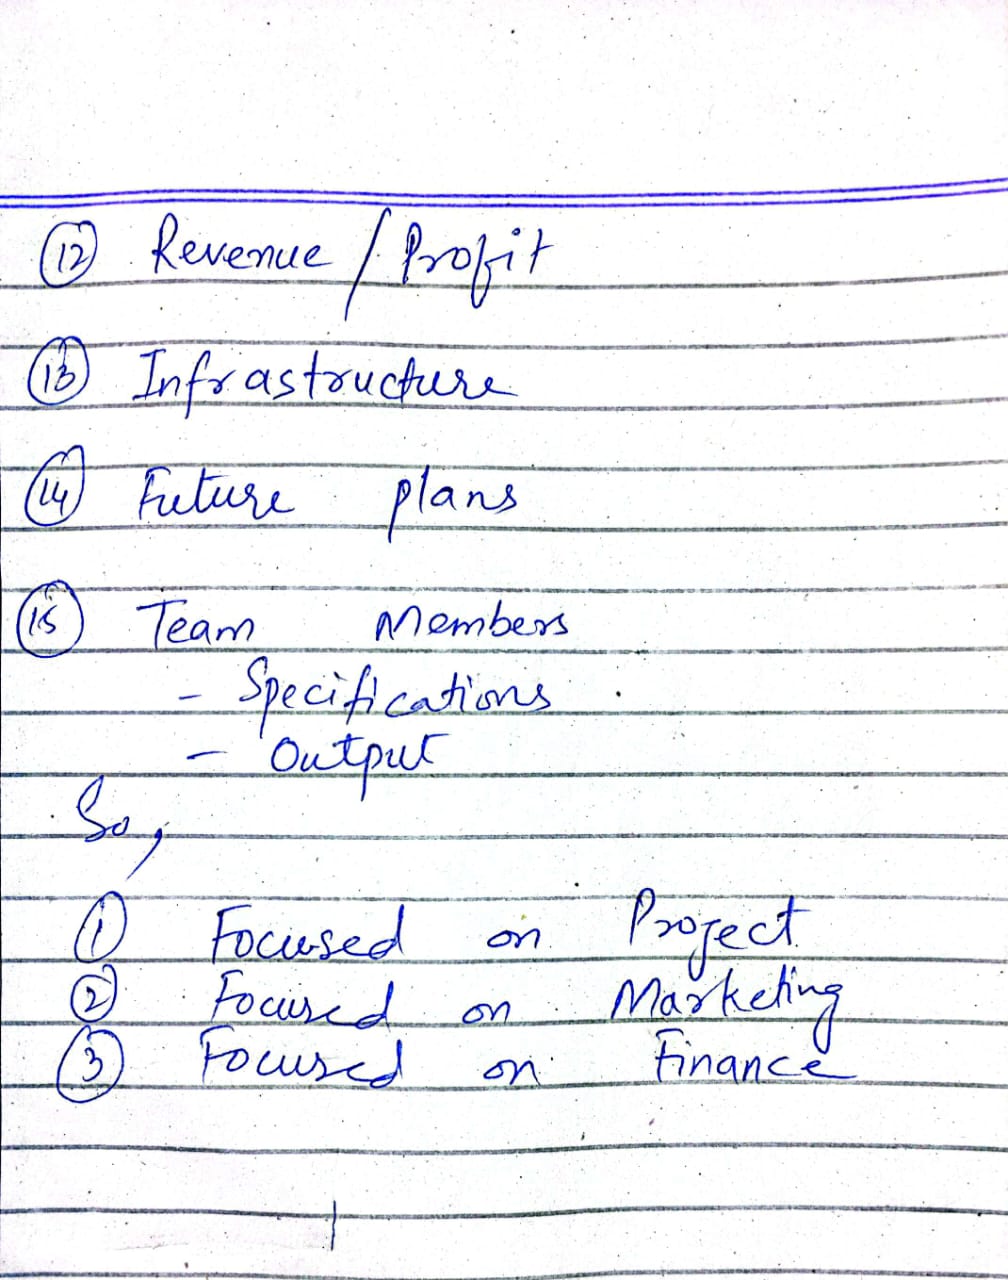 12 Revenue / Profit
13 Infrastructure
14 Future plans
15 Team Members
- Specifications
- Output
So,
1 Focused on Project
2 Focused on Marketing
3 Focused on Finance